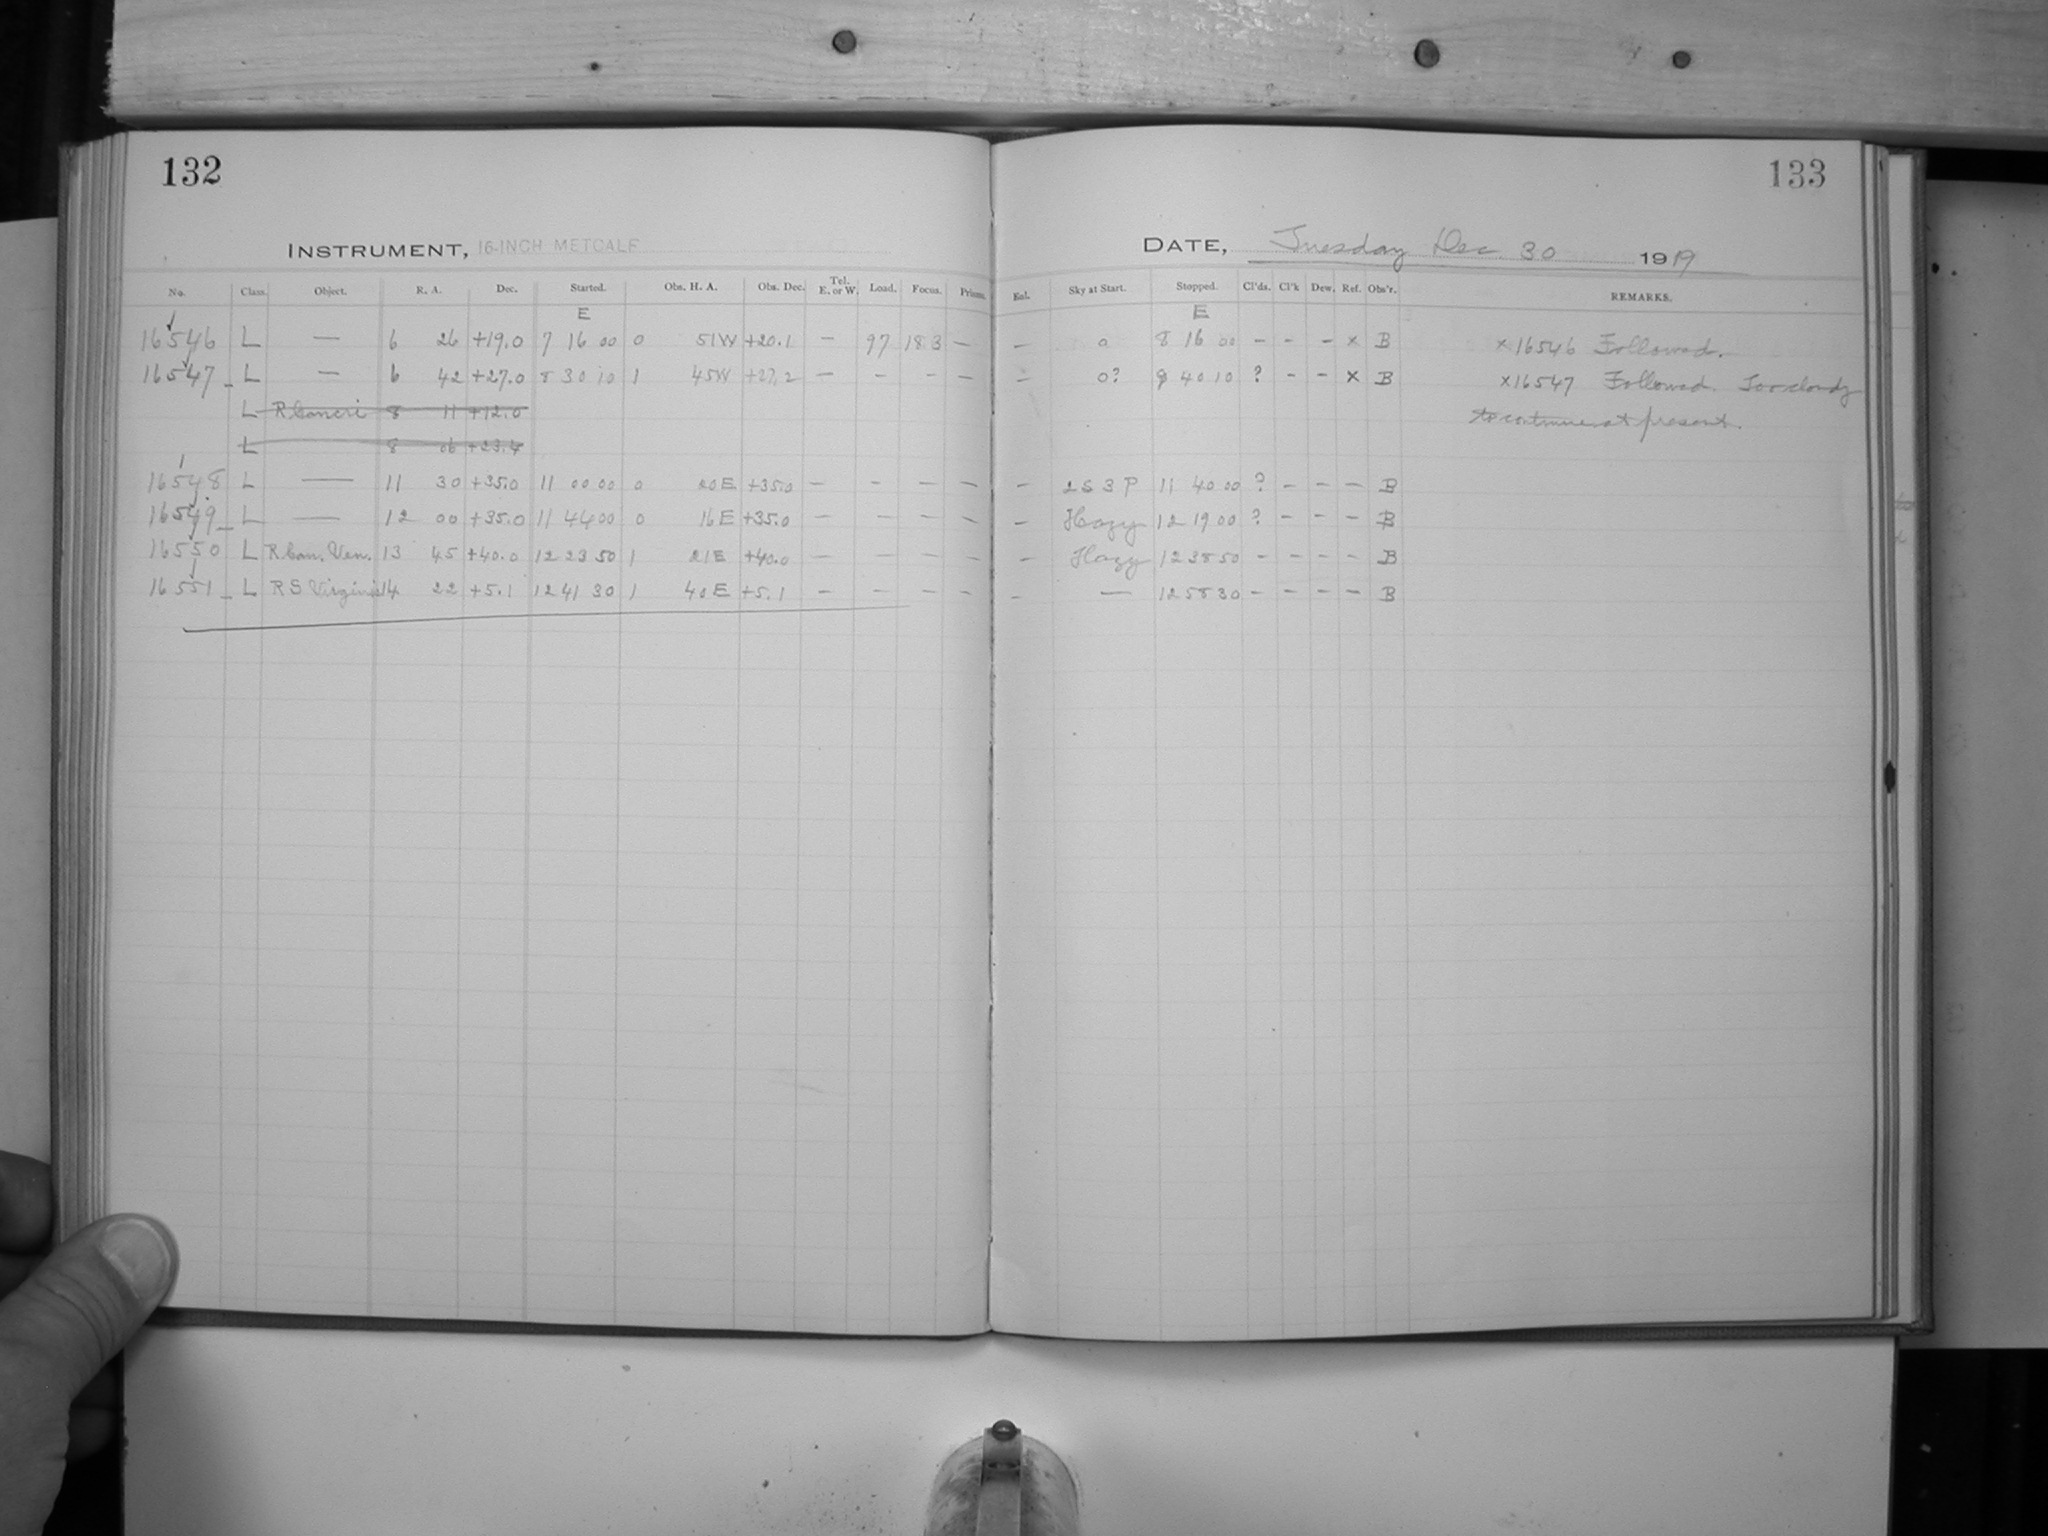 132
133
INSTRUMENT, 16-INCH METCALF
DATE, Tuesday Dec. 30 1919
No. Class. Object. R. A. Dec. Started. Obs. H. A. Obs. Dec. Tel. E. or W. Load. Focus. Prisms. Enl. Sky at Start. Stopped. Cl'ds. Cl'k Dew. Ref. Obs'r. REMARKS.
E E
16546 L — 6 26 +19.0 7 16 00 0 51W +20.1 — 97 183 — — 0 8 16 00 - - - x B x16546 Followed.
16547 L — 6 42 +27.0 8 30 10 1 45W +27.2 — - - — - 0? 9 40 10 ? - - x B x16547 Followed. Too cloudy
L R Cancri 8 11 +12.0 to continue at present.
L 8 06 +23.4
16548 L — 11 30 +35.0 11 00 00 0 20E +35.0 — - - — — 2S3P 11 40 00 ? - - — B
16549 L — 12 00 +35.0 11 44 00 0 16E +35.0 — - - - — Hazy 12 19 00 ? - - - B
16550 L R Can. Ven. 13 45 +40.0 12 23 50 1 21E +40.0 — - - - — Hazy 12 38 50 - - - - B
16551 L RS Virginis 14 22 +5.1 12 41 30 1 40E +5.1 — - - - - — 12 58 30 - - - - B